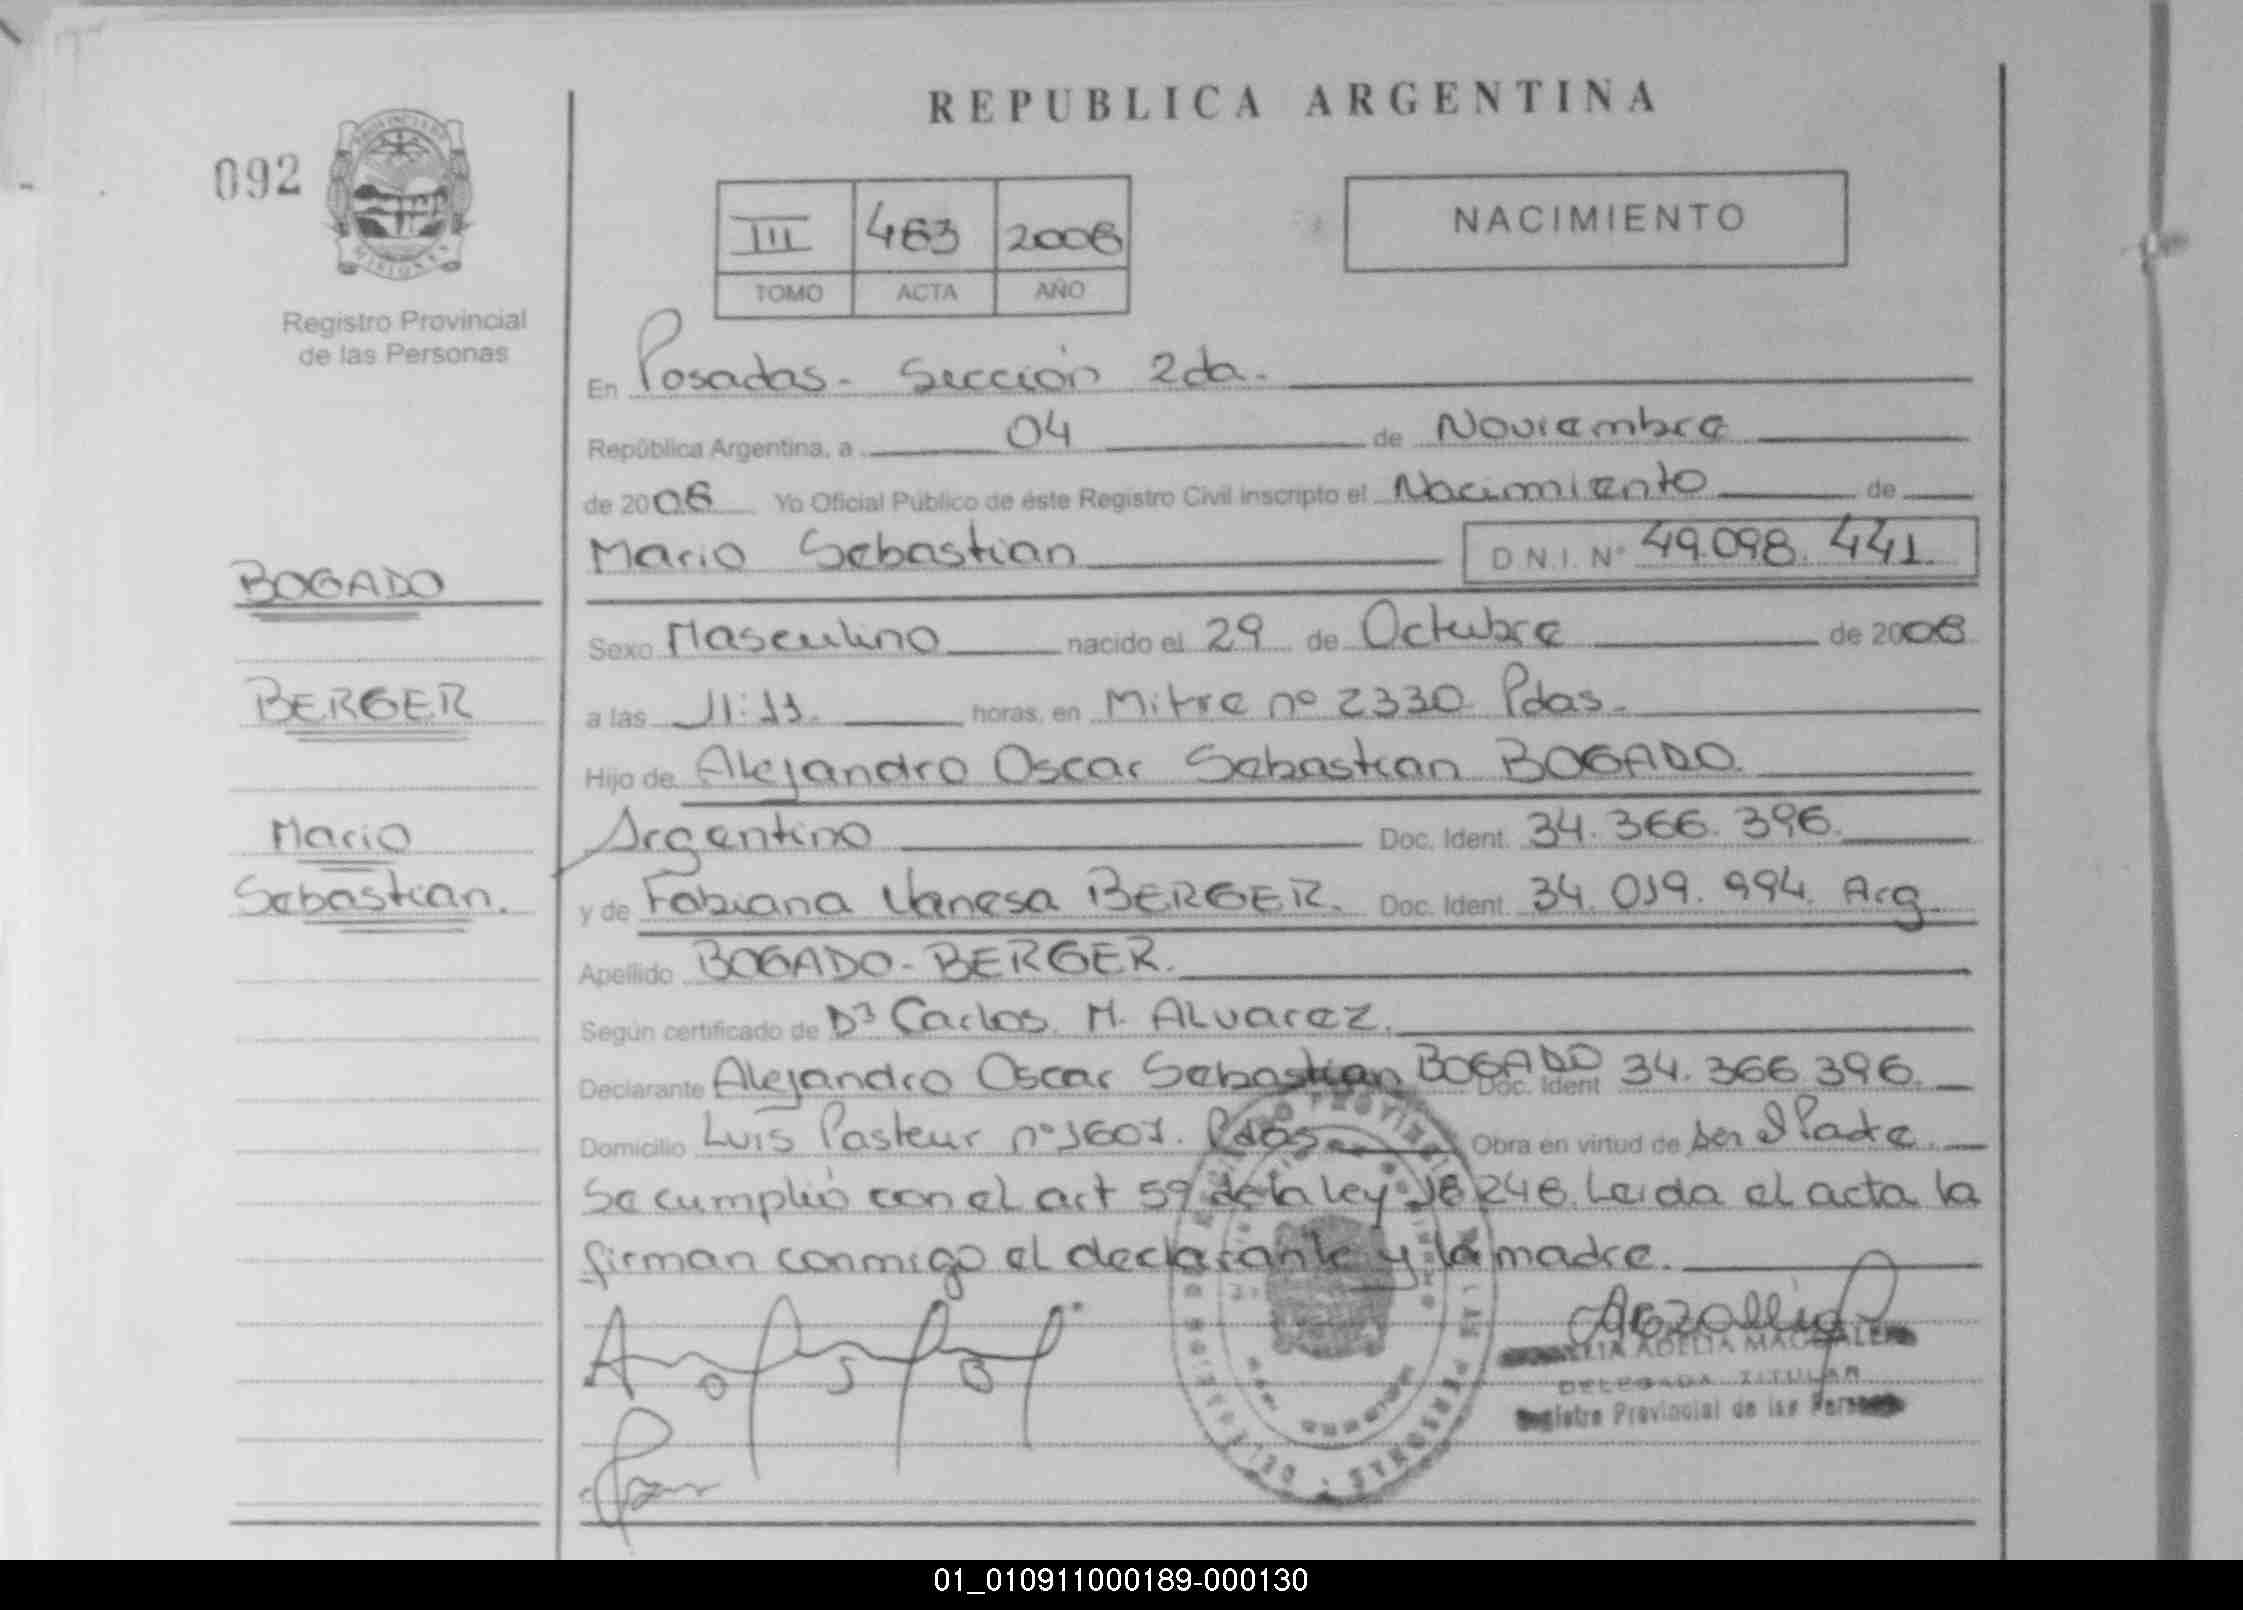 REPUBLICA ARGENTINA
092
PROVINCIA DE
MISIONES
III 483 2008
TOMO ACTA AÑO
NACIMIENTO
Registro Provincial
de las Personas
En Posadas - Sección 2da.
República Argentina, a 04 de Noviembre
de 2008 Yo Oficial Público de éste Registro Civil inscripto el Nacimiento de
Mario Sebastian D.N.I. N° 49.098.441.
BOGADO
Sexo Masculino nacido el 29 de Octubre de 2008
BERGER
a las 11:11. horas, en Mitre nº 2330 Pdas.
Hijo de Alejandro Oscar Sebastian BOGADO.
Mario
Argentino Doc. Ident. 34.366.396.
Sebastian.
y de Fabiana Vanesa BERGER. Doc. Ident. 34.019.994. Arg
Apellido BOGADO - BERGER.
Según certificado de Dr Carlos M. ALvarez.
Declarante Alejandro Oscar Sebastian BOGADO Doc. Ident 34.366.396.
Domicilio Luis Pasteur nº 1601. Pdas Obra en virtud de ser el Padre.
Se cumplió con el art 59 de la ley 18248. Leida el acta la
firman conmigo el declarante y la madre.
ADELIA MAGDALENA
DELEGADA TITULAR
Registro Provincial de las Personas
01_010911000189-000130